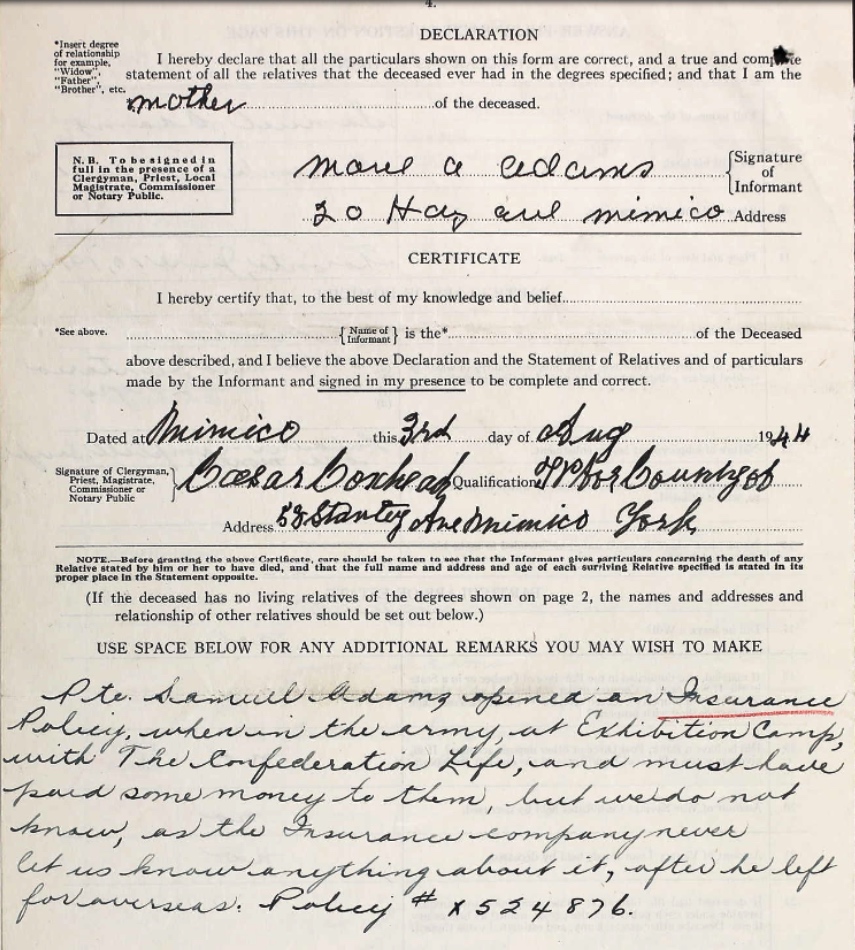 4.
DECLARATION
*Insert degree
of relationship
for example,
"Widow",
"Father",
"Brother", etc.
I hereby declare that all the particulars shown on this form are correct, and a true and complete
statement of all the relatives that the deceased ever had in the degrees specified; and that I am the
*mother of the deceased.
N.B. To be signed in
full in the presence of a
Clergyman, Priest, Local
Magistrate, Commissioner
or Notary Public.
a Adams {Signature of Informant
20 Hay ave mimico Address
CERTIFICATE
I hereby certify that, to the best of my knowledge and belief
*See above. {Name of Informant} is the* of the Deceased
above described, and I believe the above Declaration and the Statement of Relatives and of particulars
made by the Informant and signed in my presence to be complete and correct.
Dated at Mimico this 3rd day of Aug 1944
Signature of Clergyman,
Priest, Magistrate,
Commissioner or
Notary Public} Cæsar Coxhead Qualification JP for County of
Address 58 Stanley Ave Mimico York
NOTE.—Before granting the above Certificate, care should be taken to see that the Informant gives particulars concerning the death of any
Relative stated by him or her to have died, and that the full name and address and age of each surviving Relative specified is stated in its
proper place in the Statement opposite.
(If the deceased has no living relatives of the degrees shown on page 2, the names and addresses and
relationship of other relatives should be set out below.)
USE SPACE BELOW FOR ANY ADDITIONAL REMARKS YOU MAY WISH TO MAKE
Pte. Samuel Adams opened an Insurance
Policy, when in the army, at Exhibition Camp,
with The Confederation Life, and must have
paid some money to them, but we do not
know, as the Insurance company never
let us know anything about it, after he left
for overseas. Policy # X524876.